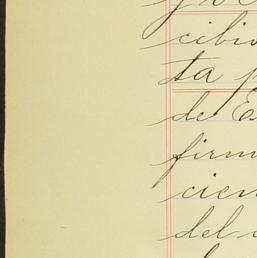 cibi
ta p
de E
firm
cien
del